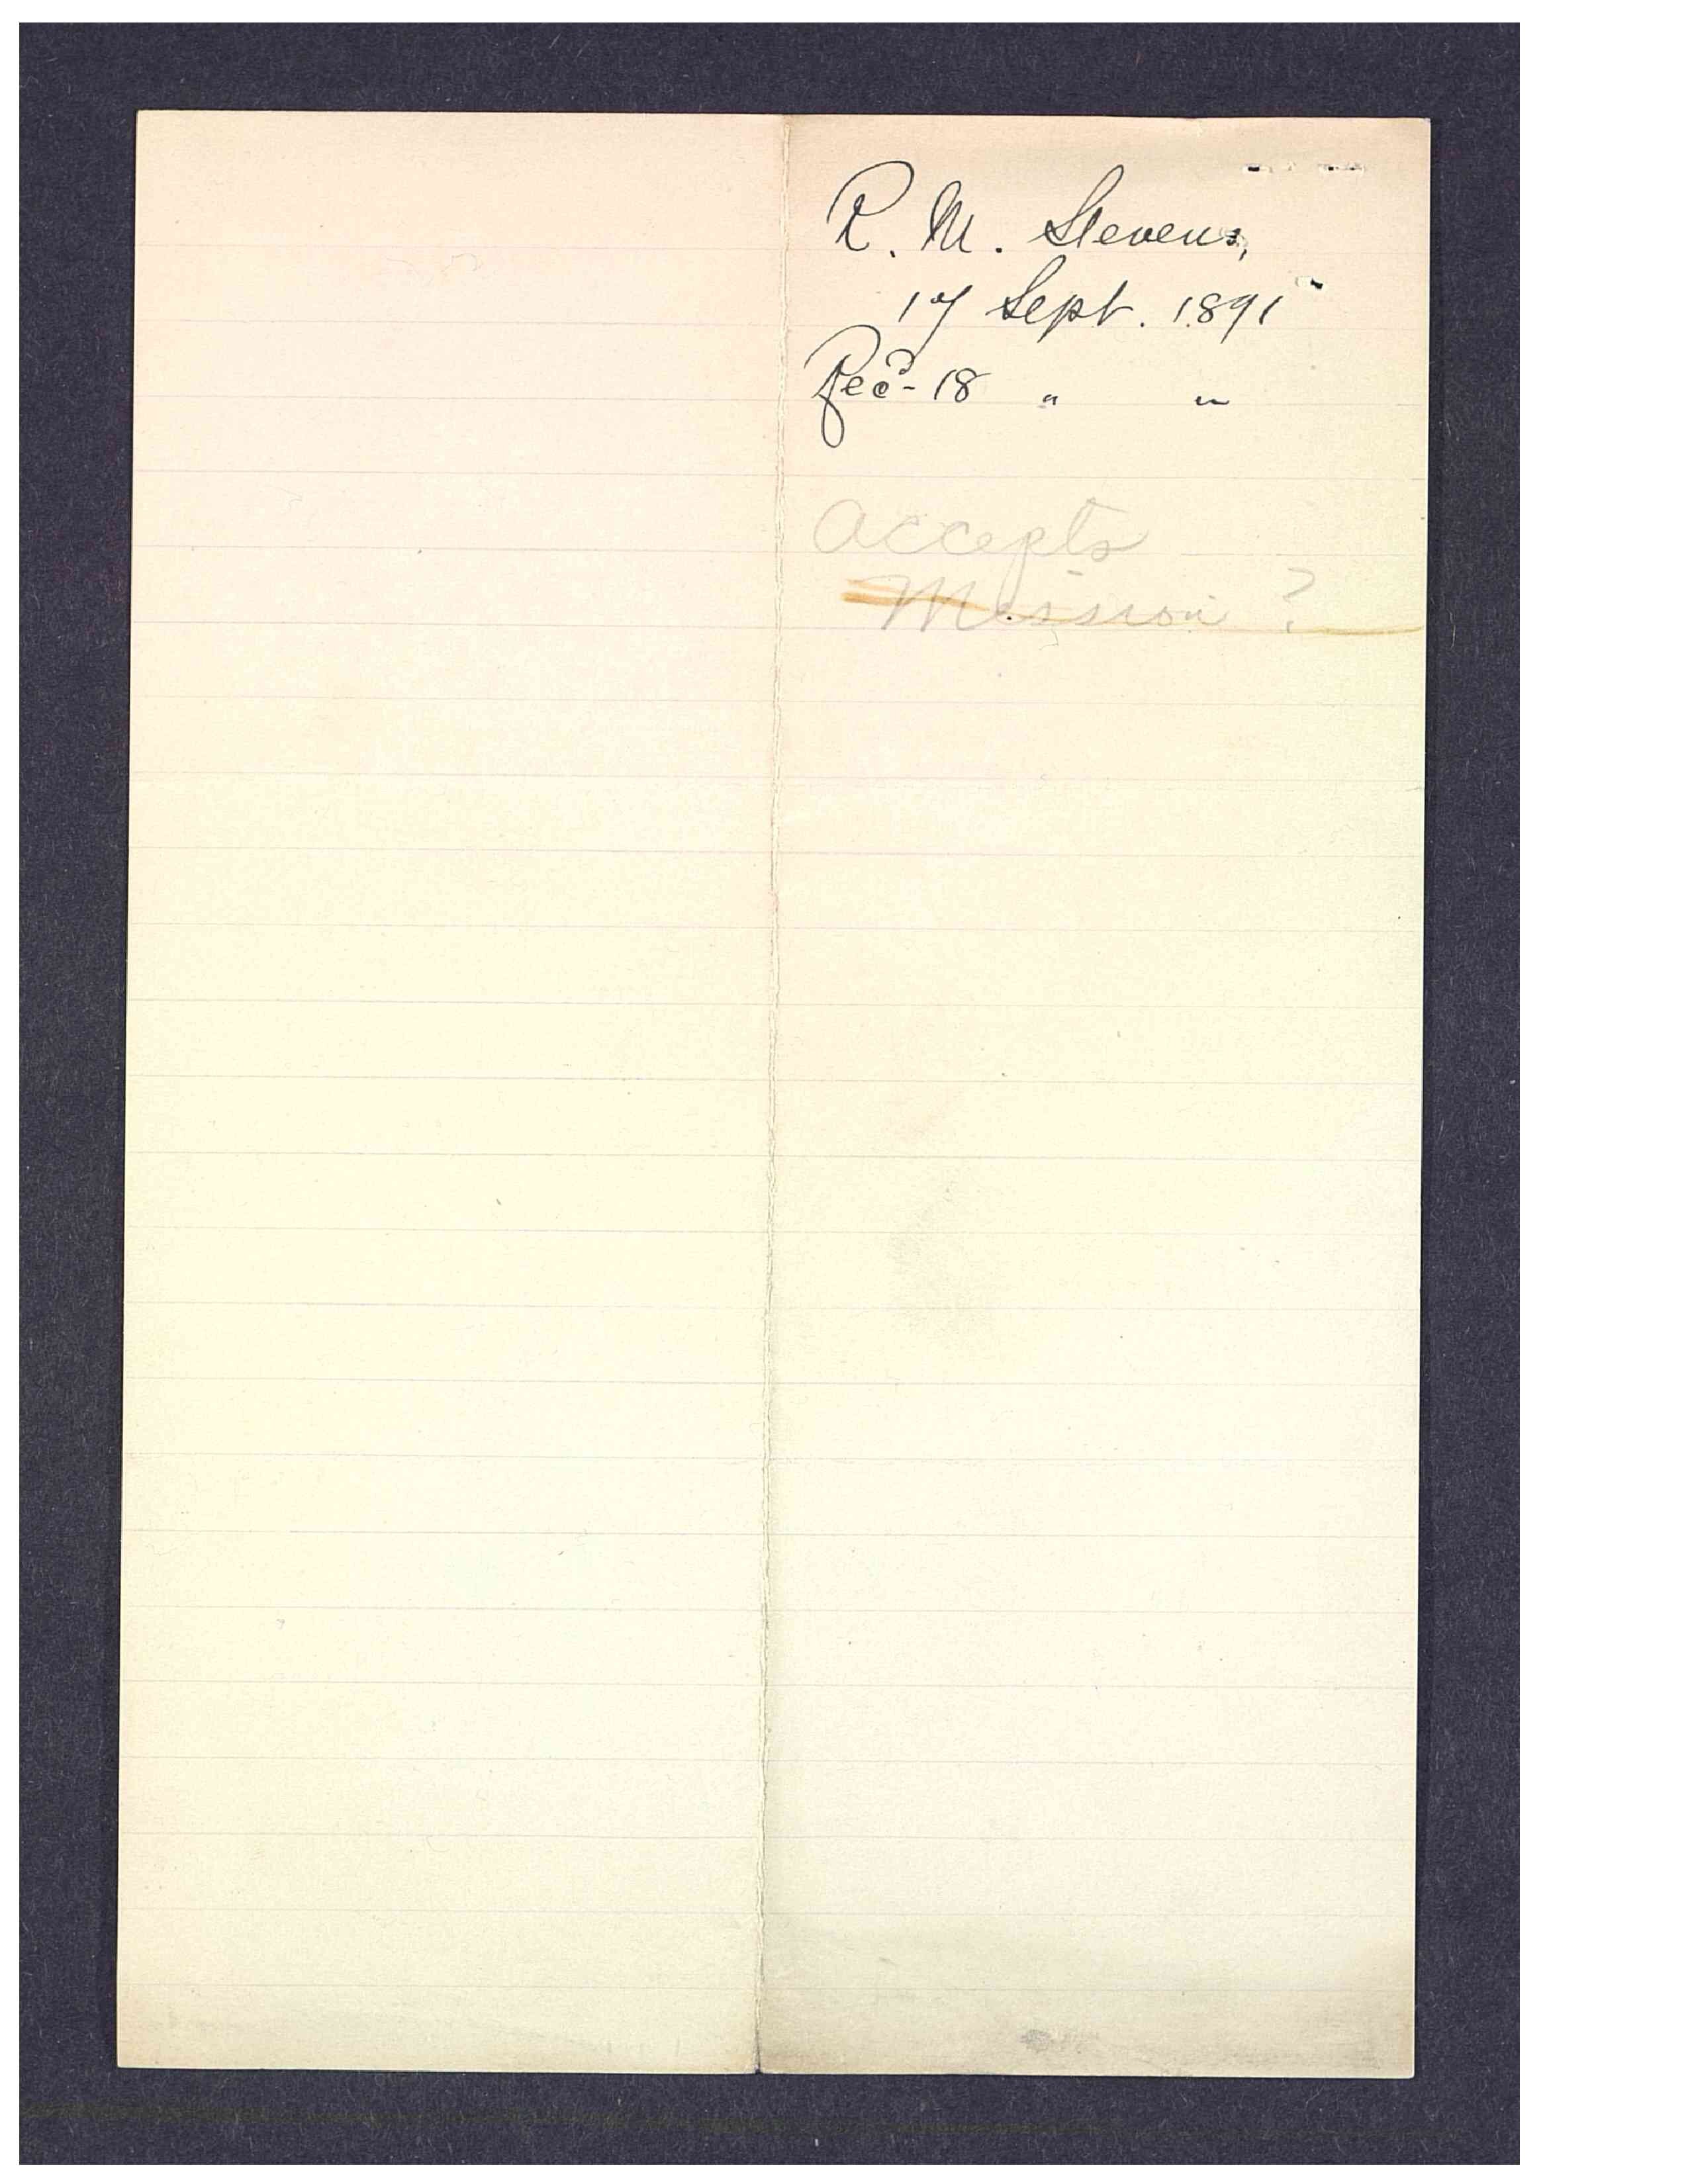 R. M. Stevens,
17 Sept. 1891
Rec'd - 18 " "
Accepts
Mission ?